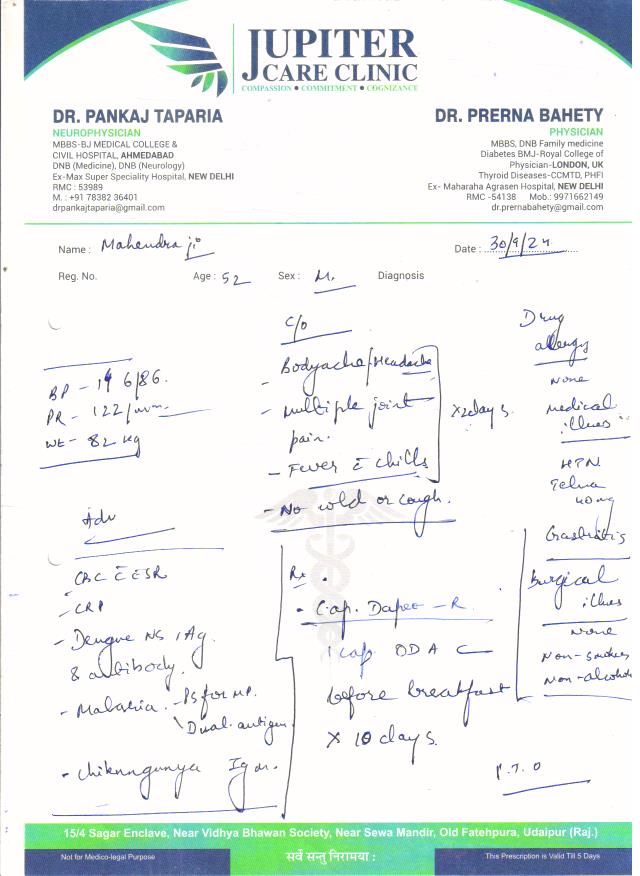 JUPITER
CARE CLINIC
COMPASSION • COMMITMENT • COGNIZANCE
DR. PANKAJ TAPARIA
NEUROPHYSICIAN
MBBS-BJ MEDICAL COLLEGE &
CIVIL HOSPITAL, AHMEDABAD
DNB (Medicine), DNB (Neurology)
Ex-Max Super Speciality Hospital, NEW DELHI
RMC : 53989
M. : +91 78382 36401
drpankajtaparia@gmail.com
DR. PRERNA BAHETY
PHYSICIAN
MBBS, DNB Family medicine
Diabetes BMJ-Royal College of
Physician-LONDON, UK
Thyroid Diseases-CCMTD, PHFI
Ex- Maharaha Agrasen Hospital, NEW DELHI
RMC -54138 Mob.: 9971662149
dr.prernabahety@gmail.com
Name : Mahendra ji Date : 30/9/24
Reg. No. Age : 52 Sex : M. Diagnosis
BP - 146/86.
PR - 122/min.
WT - 82 kg
C/O
- Bodyache/Headache
- Multiple joint
pain.
- Fever c̄ chills
x2days.
- No cold or cough.
Drug
allergy
None
Medical
illness
HTN
Telma
40mg
Gastritis
Surgical
illness
None
Non-smoker
Non-alcoholic
Adv
- CBC c̄ ESR
- CRP
- Dengue NS1Ag.
& antibody.
- Malaria. - PS for MP.
Dual antigen
- Chikungunya IgM.
Rx
• Cap. - R.
1 cap OD AC
before breakfast
X 10 days.
P.T.O
15/4 Sagar Enclave, Near Vidhya Bhawan Society, Near Sewa Mandir, Old Fatehpura, Udaipur (Raj.)
Not for Medico-legal Purpose
सर्वे सन्तु निरामया :
This Prescription is Valid Till 5 Days